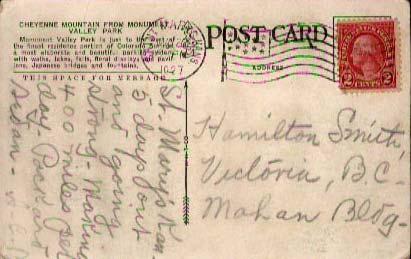 CHEYENNE MOUNTAIN FROM MONUMENT
VALLEY PARK
Monument Valley Park is just to the west of
the finest residence portion of Colorado Springs,
a most elaborate and beautiful park
with walks, lakes, falls, floral displays and
Japanese bridges and fountains.
THIS SPACE FOR MESSAGE
POST CARD
ADDRESS
1927
2 CENTS 2
St. Mary's Kan.
5 days out
and going
strong - Making
400 miles per
day - Packard
Sedan -
Hamilton Smith,
Victoria, B.C.-
Mahan Bldg-